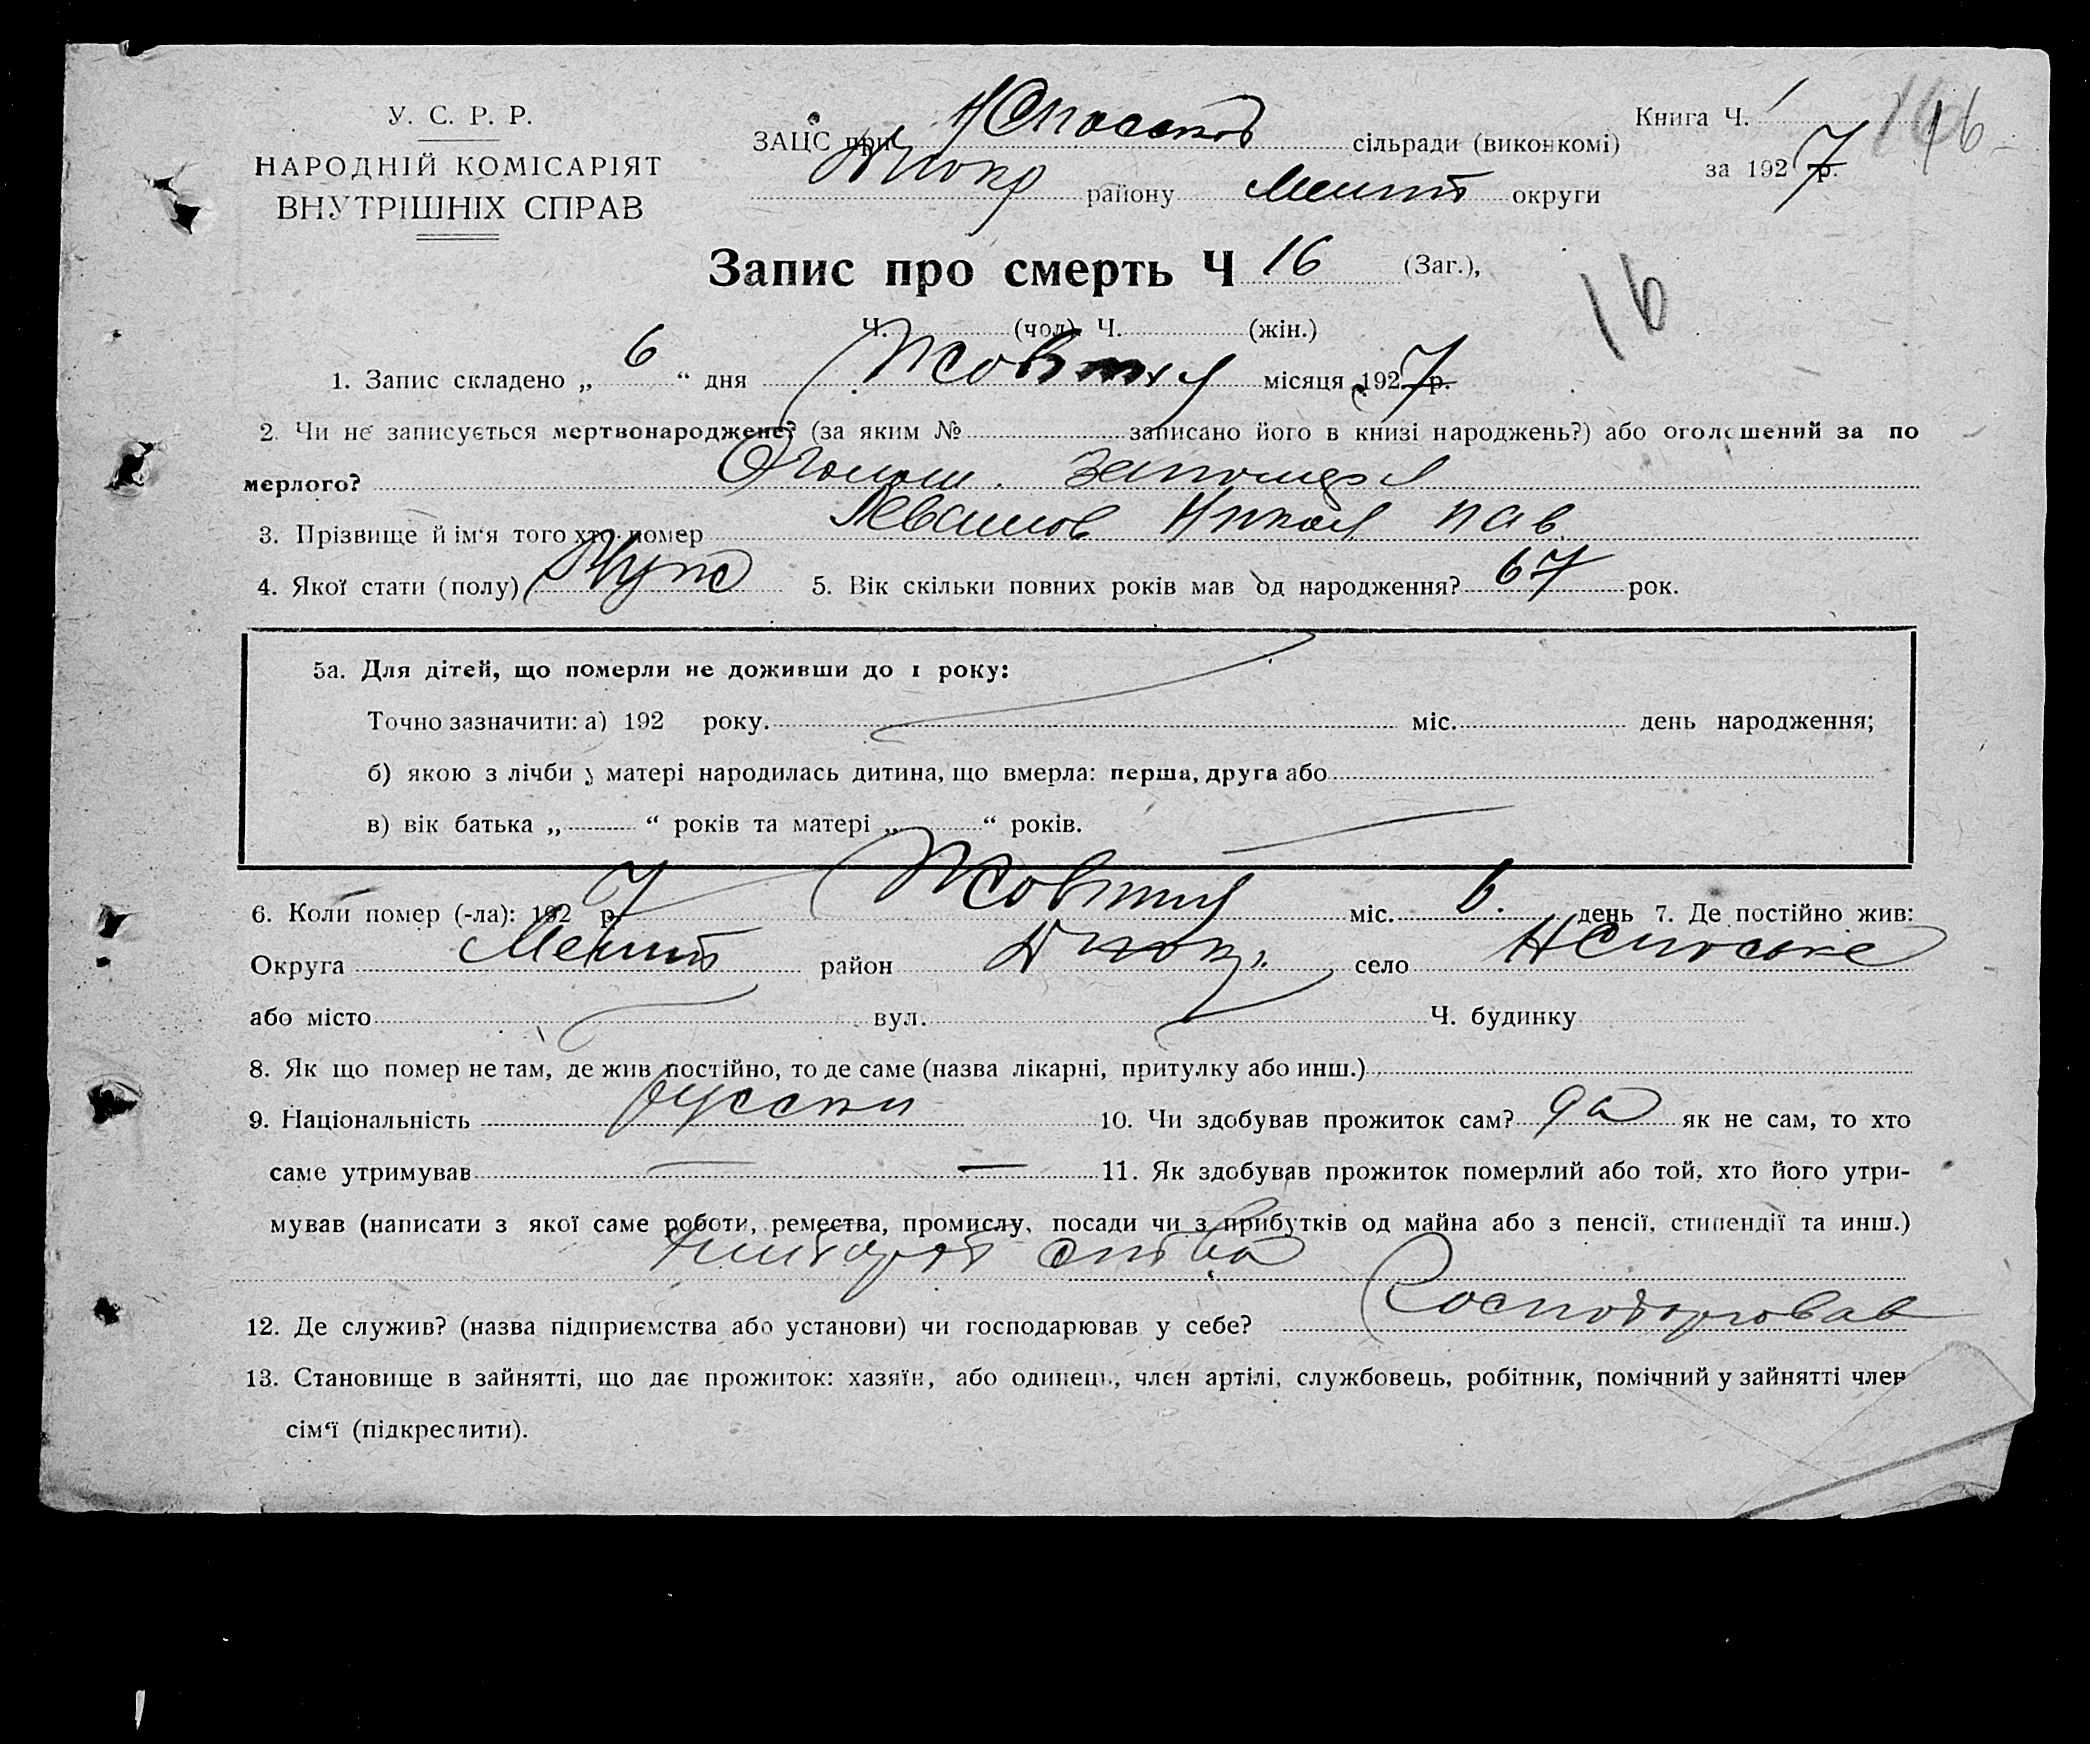 У. С. Р. Р.
НАРОДНІЙ КОМІСАРІЯТ
ВНУТРІШНІХ СПРАВ
Книга Ч. 1 16
ЗАЦС при НСпасской сільради (виконкомі)
за 1927 р.
району Мелит округи
Запис про смерть Ч 16 (Заг.),
16
Ч. (чол) Ч. (жін.)
1. Запис складено „ 6 “ дня Жовтня місяця 1927 р.
2. Чи не записується мертвонароджене? (за яким № записано його в книзі народжень?) або оголошений за по
мерлого?
3. Прізвище й ім'я того хто помер Левашов Никол Пав.
4. Якої стати (полу) Муже 5. Вік скільки повних років мав од народження? 67 рок.
5а. Для дітей, що померли не доживши до 1 року:
Точно зазначити: а) 192 року. міс. день народження;
б) якою з лічби у матері народилась дитина, що вмерла: перша, друга або
в) вік батька „ “ років та матері „ “ років.
6. Коли помер (-ла): 1927 р. Жовтня міс. 6. день 7. Де постійно жив:
Округа Мелит район село НСпаське
або місто вул. Ч. будинку
8. Як що помер не там, де жив постійно, то де саме (назва лікарні, притулку або инш.)
9. Національність русски 10. Чи здобував прожиток сам? да як не сам, то хто
саме утримував — — 11. Як здобував прожиток померлий або той, хто його утри-
мував (написати з якої саме роботи, ремества, промислу, посади чи з прибутків од майна або з пенсії, стипендії та инш.)
12. Де служив? (назва підприємства або установи) чи господарював у себе? Господорював
13. Становище в зайнятті, що дає прожиток: хазяїн, або одинець, член артілі, службовець, робітник, помічний у зайнятті член
сім‘ї (підкреслити).